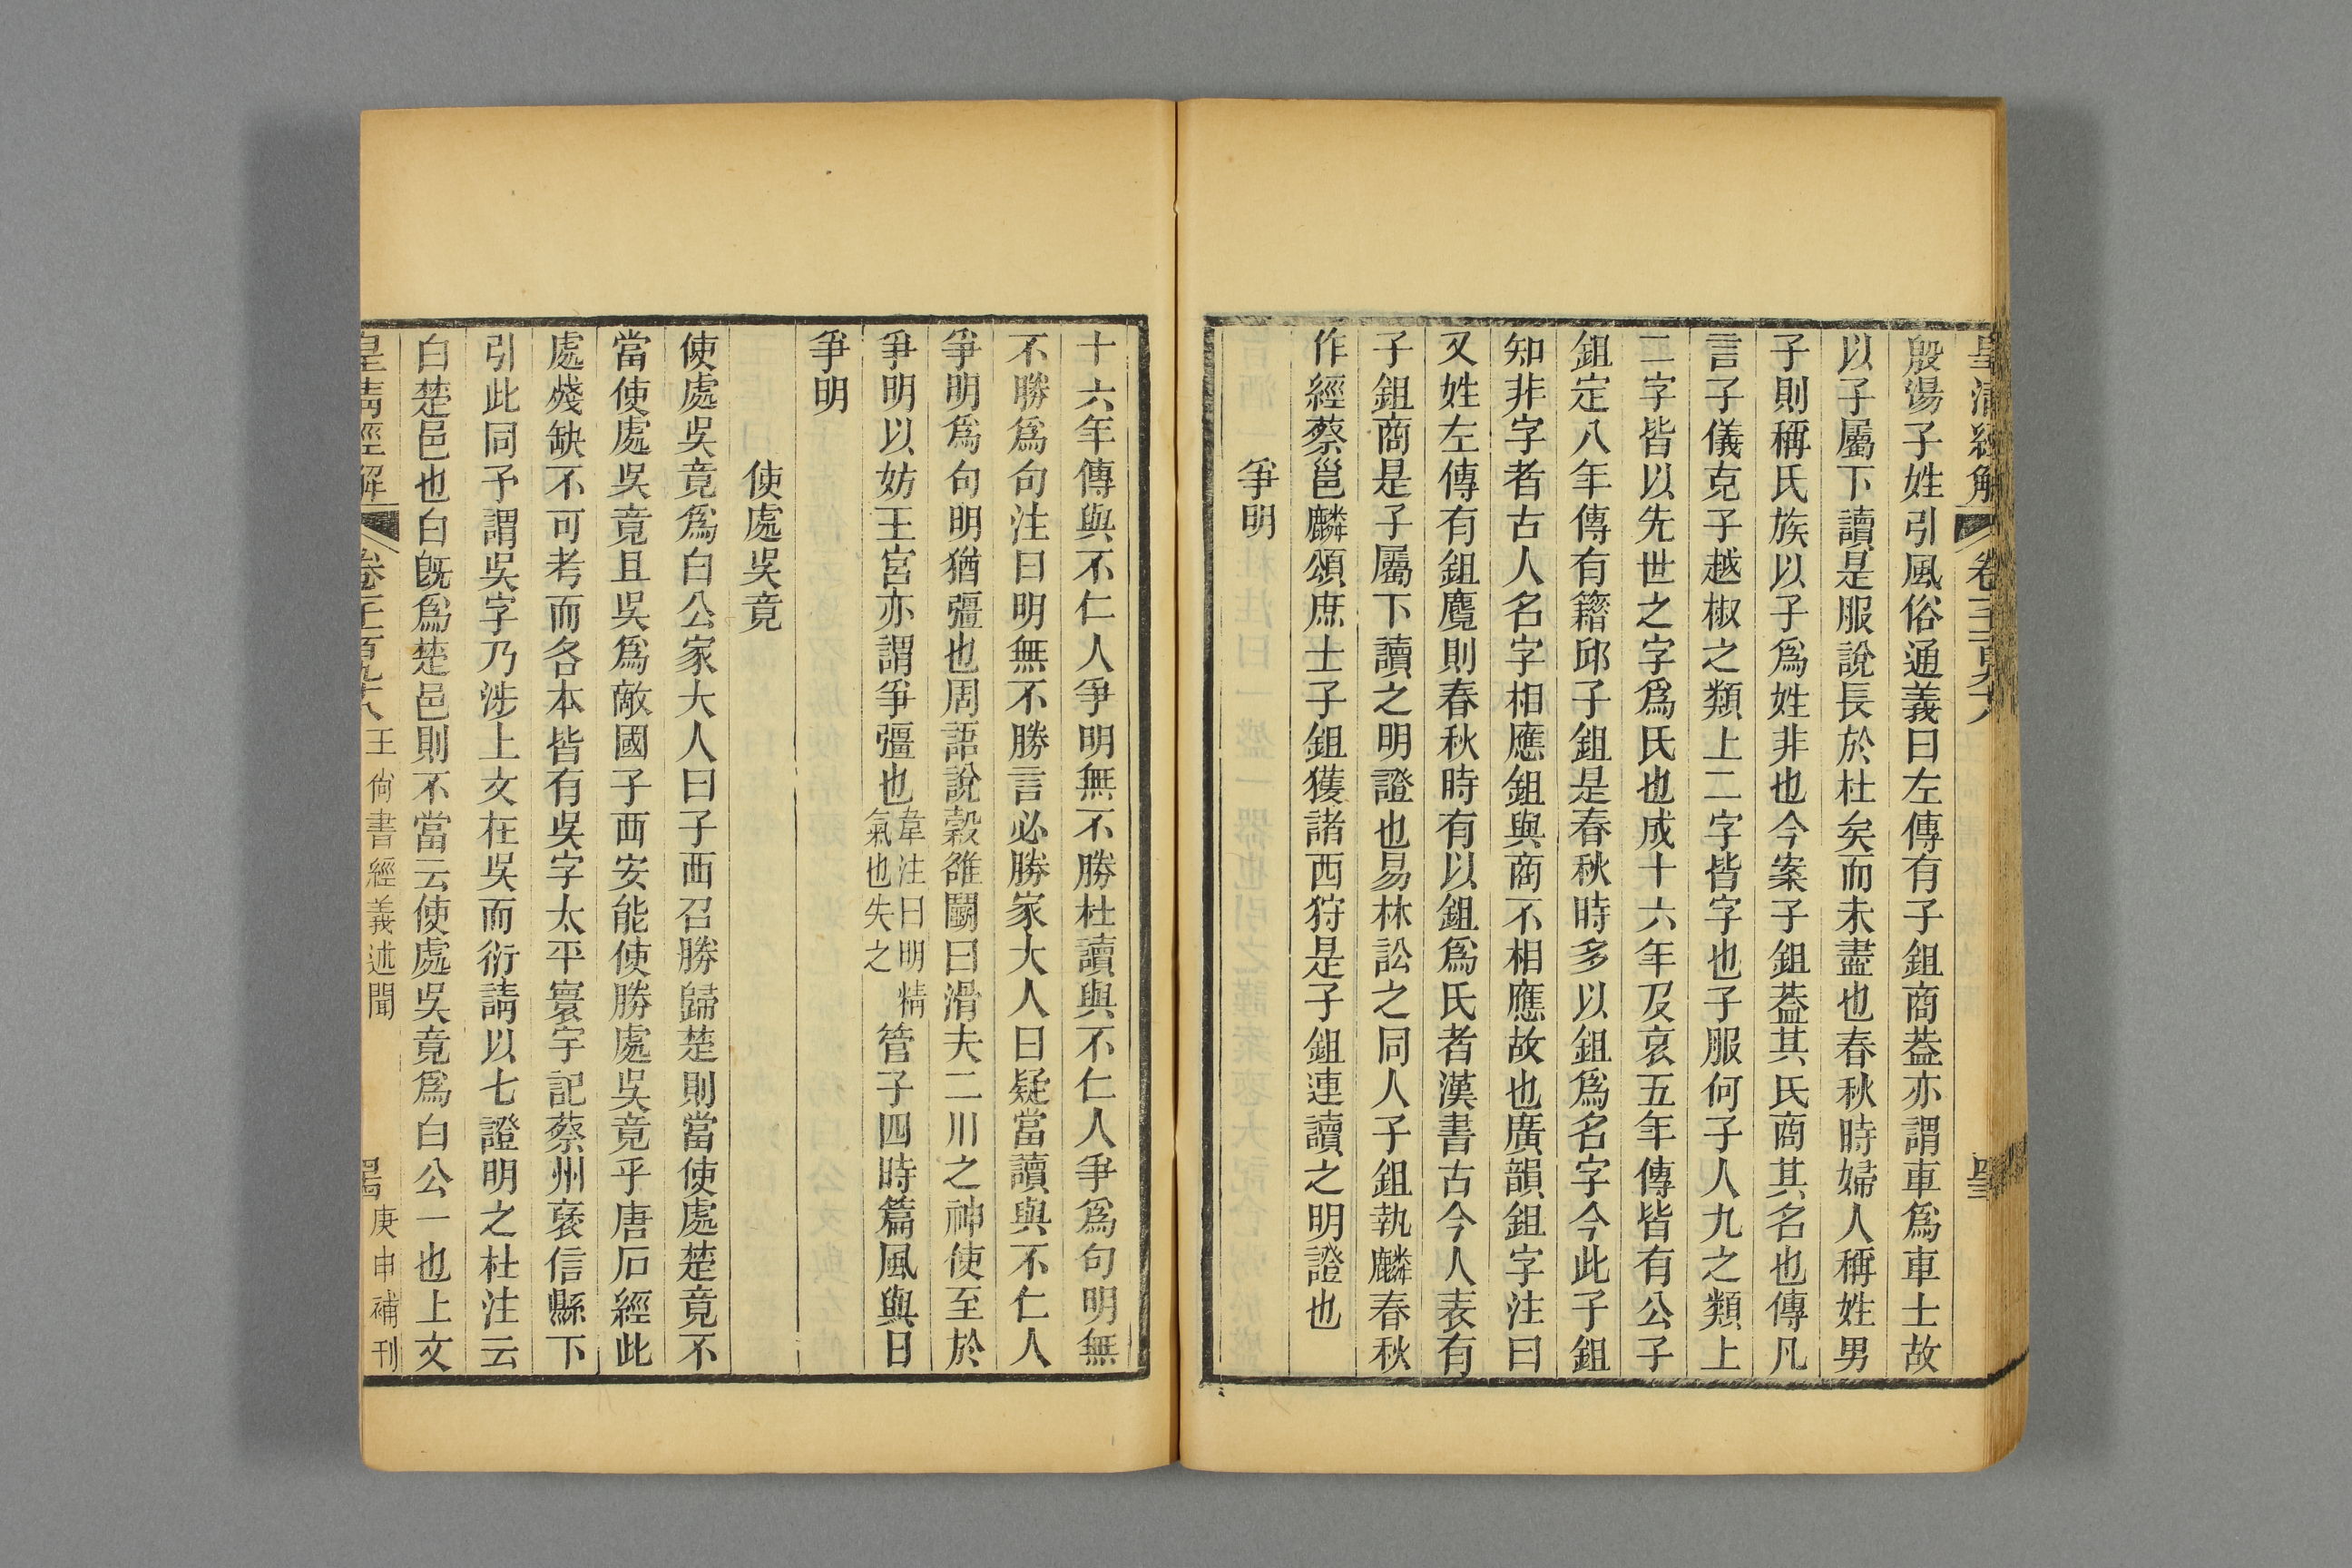 皇清經解 卷
殷湯子姓引風俗通義曰左傳有子鉏商葢亦謂車爲車士故
以子屬下讀是服說長於杜矣而未盡也春秋時婦人稱姓男
子則稱氏族以子爲姓非也今案子鉏葢其氏商其名也傳凡
言子儀克子越椒之類上二字皆字也子服何子人九之類上
二字皆以先世之字爲氏也成十六年及哀五年傳皆有公子
鉏定八年傳有籍邱子鉏是春秋時多以鉏爲名字今此子鉏
知非字者古人名字相應鉏與商不相應故也廣韻鉏字注曰
又姓左傳有鉏麑則春秋時有以鉏爲氏者漢書古今人表有
子鉏商是子屬下讀之明證也易林訟之同人子鉏執麟春秋
作經蔡邕麟頌庶士子鉏獲諸西狩是子鉏連讀之明證也
爭明
十六年傳與不仁人爭明無不勝杜讀與不仁人爭爲句明無
不勝爲句注曰明無不勝言必勝家大人曰疑當讀與不仁人
爭明爲句明猶彊也周語說穀雒鬭曰滑夫二川之神使至於
爭明以妨王宮亦謂爭彊也韋注曰明精氣也失之管子四時篇風與日
爭明
使處吳竟
使處吳竟爲白公家大人曰子西召勝歸楚則當使處楚竟不
當使處吳竟且吳爲敵國子西安能使勝處吳竟乎唐石經此
處殘缺不可考而各本皆有吳字太平寰宇記蔡州褒信縣下
引此同予謂吳字乃涉上文在吳而衍請以七證明之杜注云
白楚邑也白旣爲楚邑則不當云使處吳竟爲白公一也上文
皇淸經解 卷一千一百九十八 王尙書經義述聞 庚申補刊